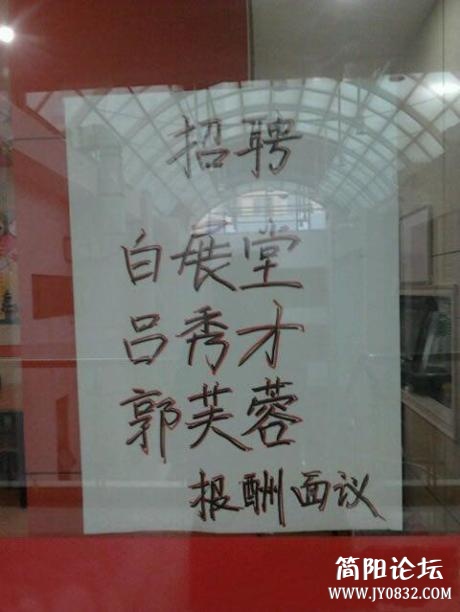 招聘
白展堂
吕秀才
郭芙蓉
报酬面议
简阳论坛
www.JY0832.com